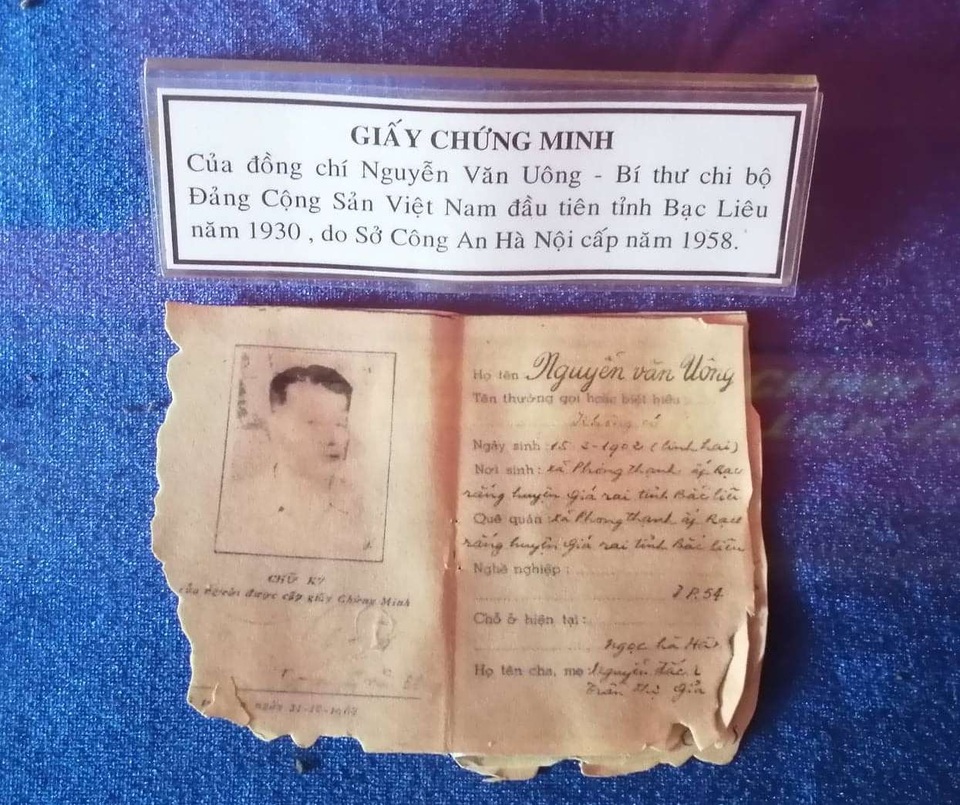 GIẤY CHỨNG MINH
Của đồng chí Nguyễn Văn Uông - Bí thư chi bộ
Đảng Cộng Sản Việt Nam đầu tiên tỉnh Bạc Liêu
năm 1930 , do Sở Công An Hà Nội cấp năm 1958.
CHỮ KÝ
của người được cấp giấy Chứng Minh
Họ tên Nguyễn văn Uông
Tên thường gọi hoặc biệt hiệu
Không có
Ngày sinh 15-2-1902
Nơi sinh: xã Phong thanh ấp Rạch
rằng huyện Giá rai tỉnh Bắc liêu
Quê quán: xã Phong thanh ấp Rạch
rằng huyện Giá rai tỉnh Bắc liêu
Nghề nghiệp:
Chỗ ở hiện tại:
Ngọc hà Hà
Họ tên cha, mẹ Nguyễn đắc
Trần thị Giả